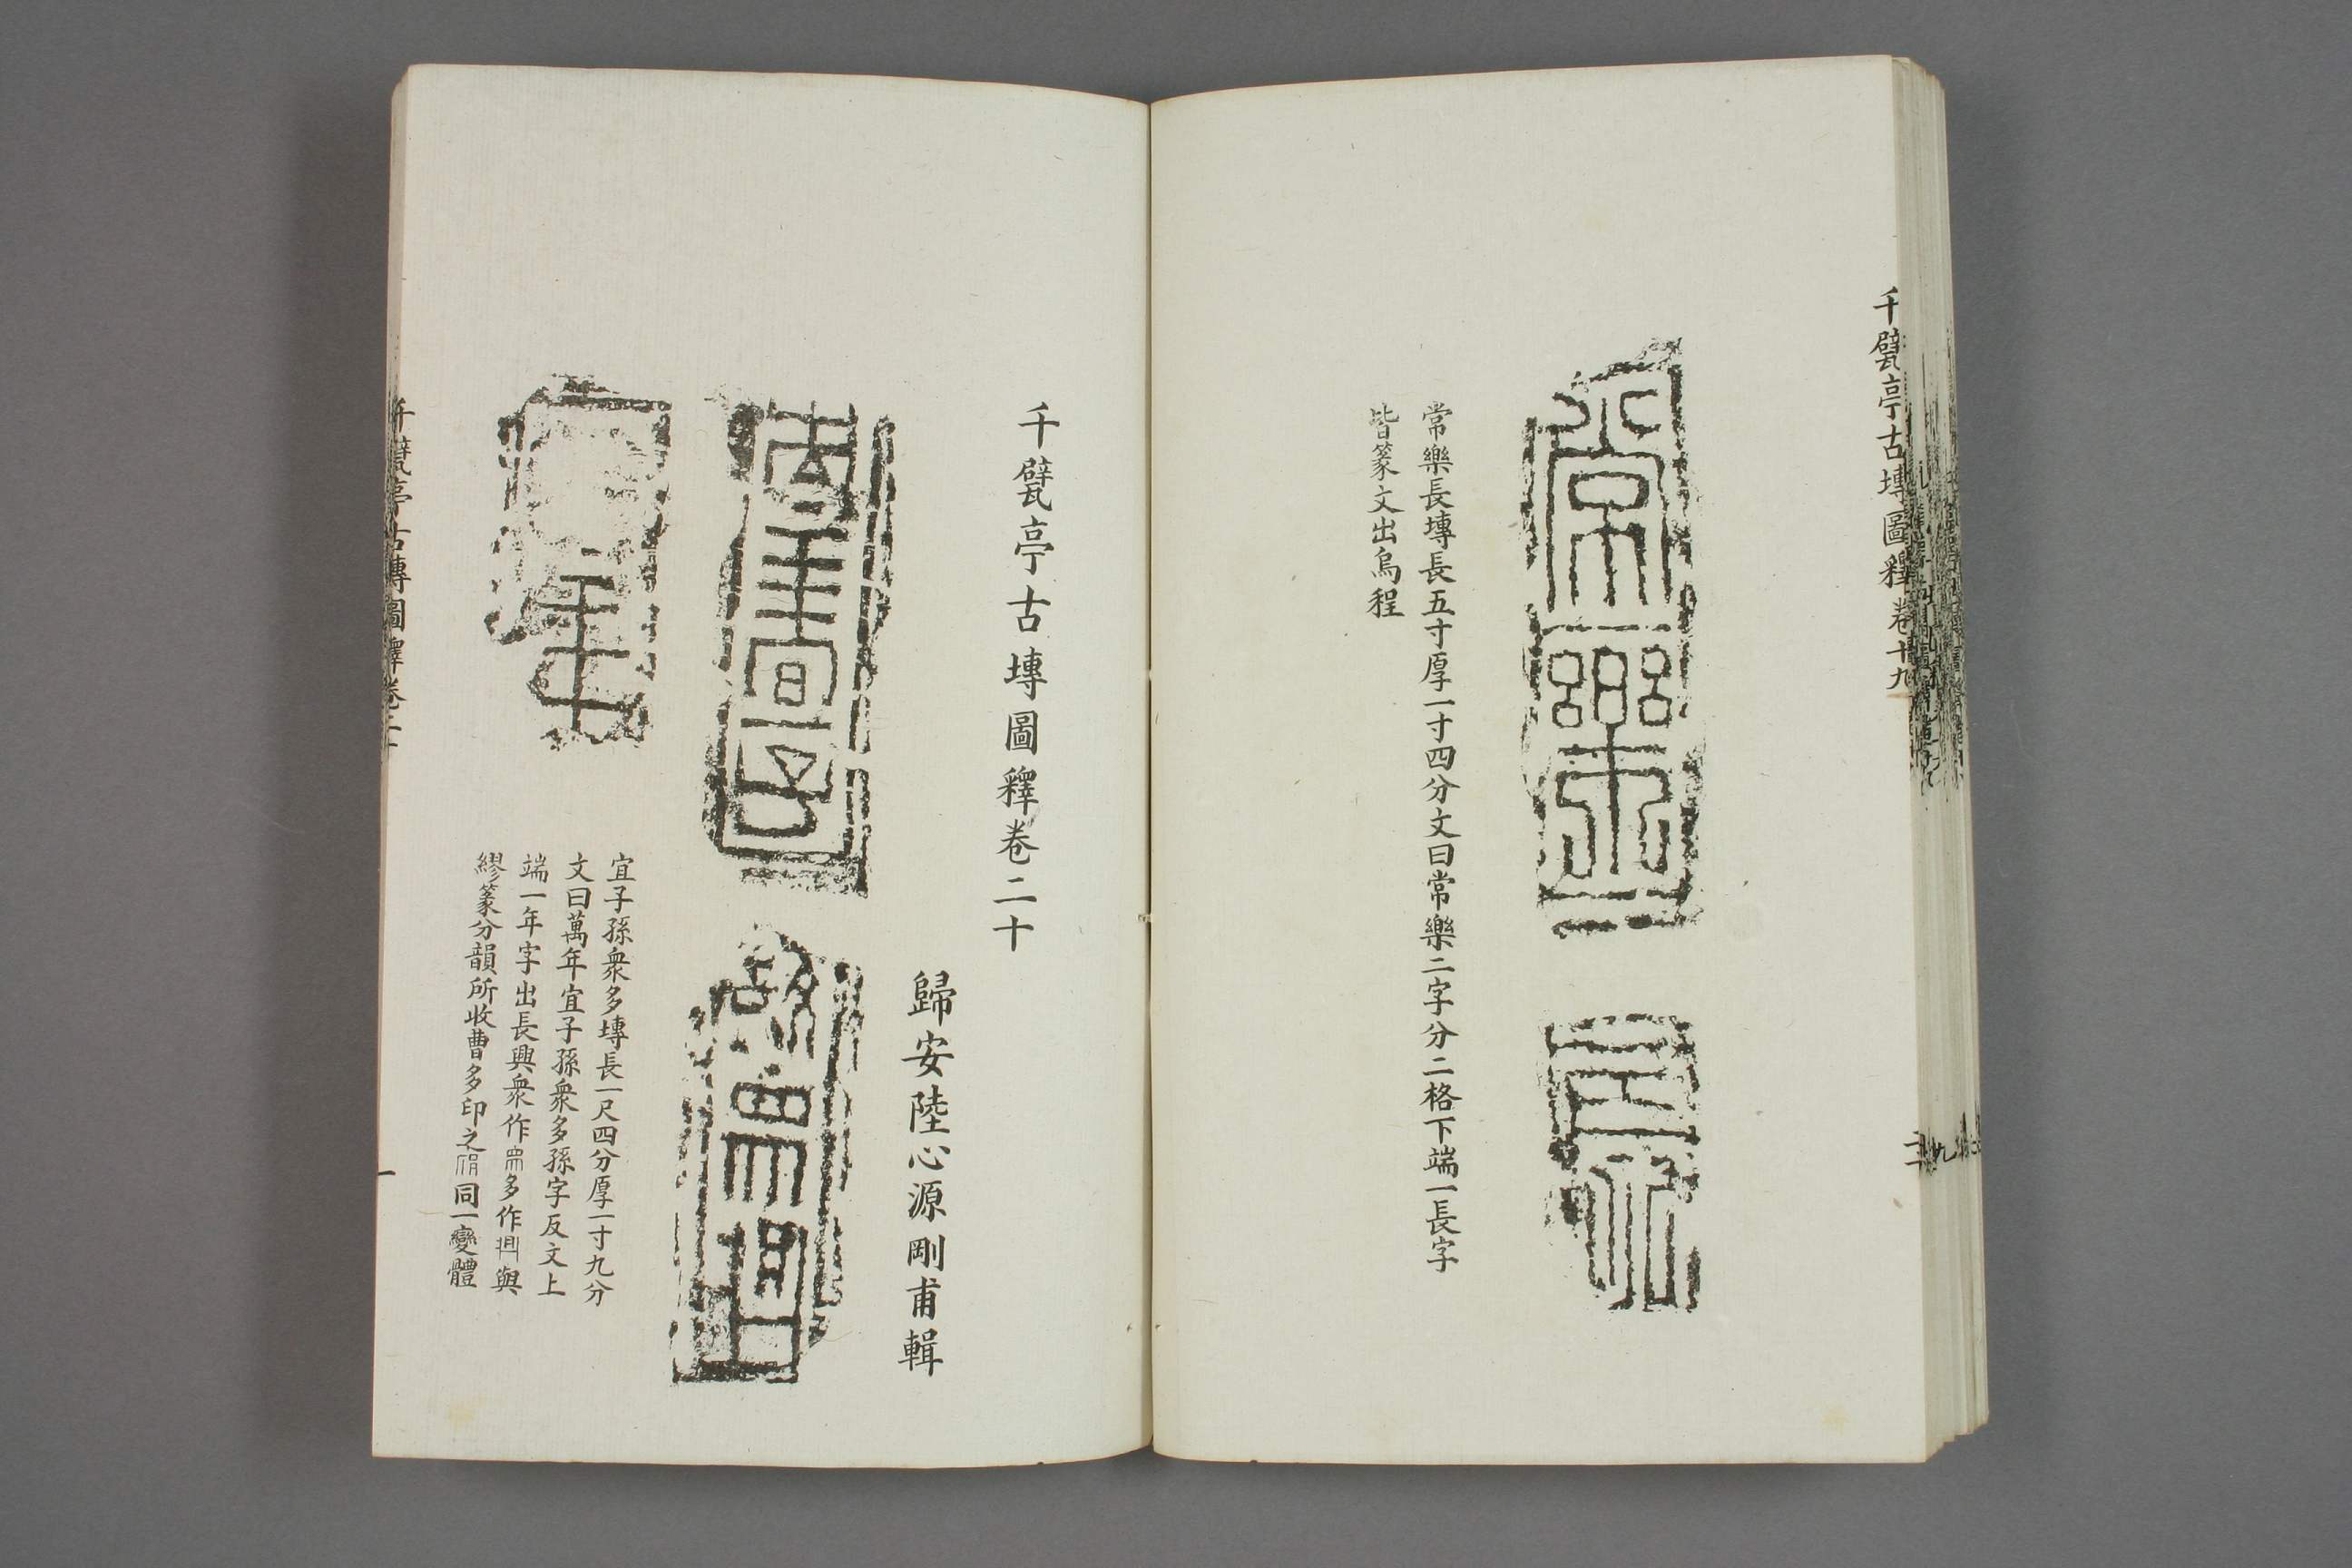 千甓亭古塼圖釋卷十九
常樂
長
常樂長塼長五寸厚一寸四分文曰常樂二字分二格下端一長字
皆篆文出烏程
千甓亭古塼圖釋卷二十
歸安陸心源剛甫輯
萬年宜子
孫衆多
年
宜子孫衆多塼長一尺四分厚一寸九分
文曰萬年宜子孫衆多孫字反文上
端一年字出長興衆作多作與
繆篆分韻所收曹多印之同一變體
千甓亭古塼圖釋卷二十
一